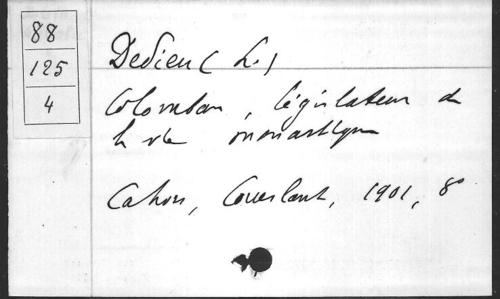 88
125
4
Dedieu (L.)
Colomban, législateur de
la vie monastique
Cahors, Coueslant, 1901, 8°